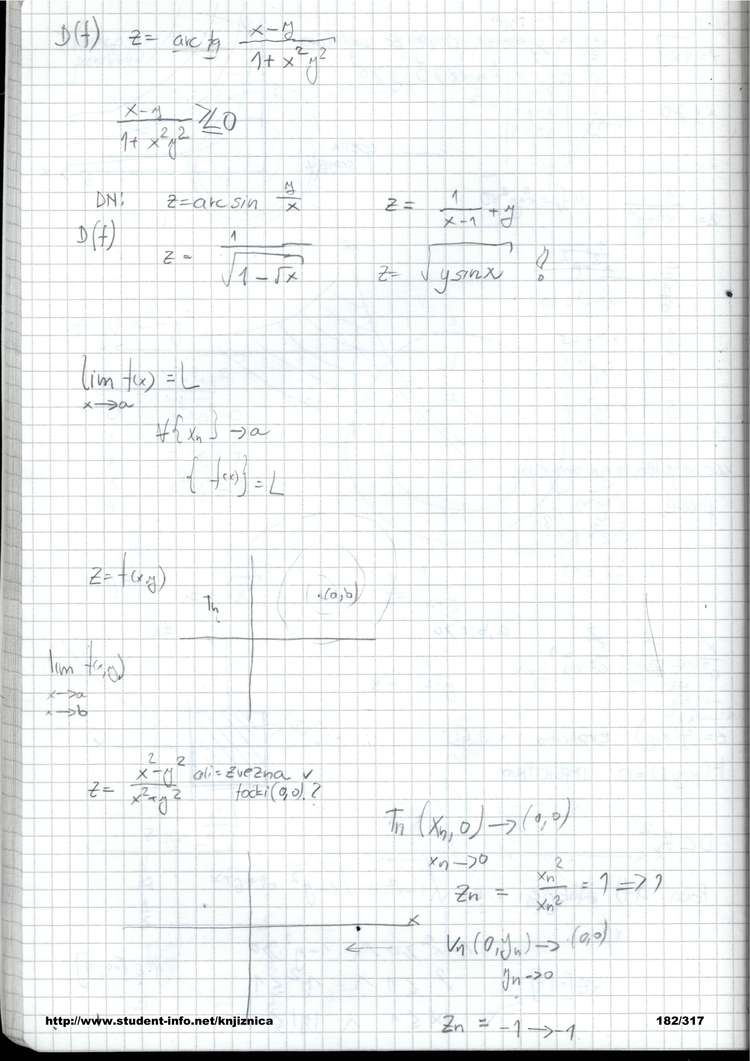 D(f) z = arc tg (x-y)/(1+x²y²)
(x-y)/(1+x²y²) ≥ 0
DN: z = arcsin y/x
z = 1/(x-1) + y
D(f)
z = 1/√(1-√x)
z = √(y sinx) !
lim f(x) = L
x→a
∀{xₙ} → a
{f(x)} = L
z = f(x,y)
Tₙ
.(a,b)
lim f(x,y)
x→a
x→b
z = (x²-y²)/(x²+y²) ali = zvezna v
točki (0,0)?
Tₙ (xₙ,0) → (0,0)
xₙ→0
zₙ = xₙ²/xₙ² = 1 => 1
x
Vₙ (0,yₙ) → (0,0)
yₙ→0
http://www.student-info.net/knjiznica
182/317
zₙ = -1 → -1